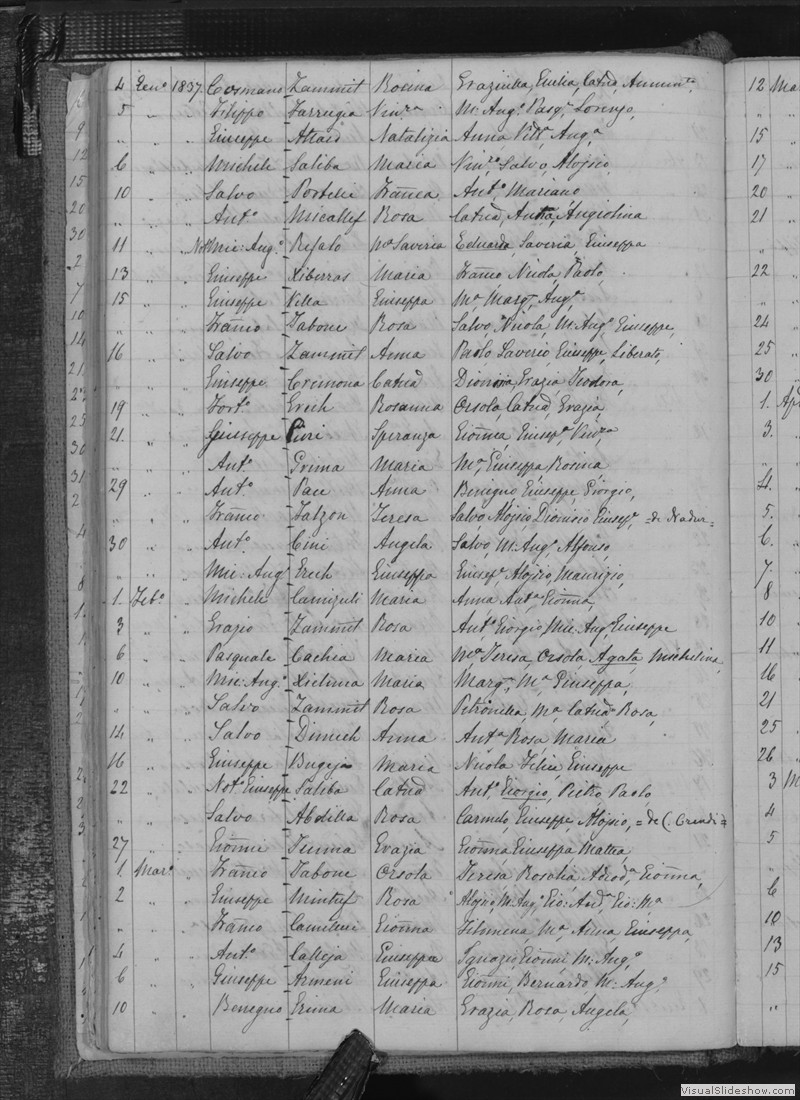 4 Genº 1837 Cosmano Zammit Rosina Graziulla, Giulia, Catnã Annun
5 " " Filippo Farrugia Vinza M: Augº Pasqe Lorenzo,
" " " Giuseppe Attard Natalizia Anna Vitta Auga
6 " " Michele Saliba Maria Vinzo Salvo, Aloisio,
10 " " Salvo Portelli Franca Antº Mariano
" " " Antº Micallef Rosa Catnã, Anna, Angiolina
11 " " Not Mic: Augº Refalo Mª Saveria Eduarda, Saveria, Giuseppa
13 " " Giuseppe Xiberras Maria Franco Nicola Paolo,
15 " " Giuseppe Vella Giuseppa Mª Margta Augª
" " " Franco Tabone Rosa Salvo, Nicola, M: Augº Giuseppe,
16 " " Salvo Zammit Anna Paolo Saverio, Giuseppe, Liberato,
" " " Giuseppe Cremona Catnã Dionora, Grazia Teodora,
19 " " Fortº Grech Rosanna Orsola, Catnã, Grazia,
21. " " Giuseppe Speranza Gioñna, Giusepe Vinza
" " " Antº Grima Maria Mª Giuseppa Rosina
29 " " Antº Pace Anna Benigno Giuseppe Giorgio,
" " " Franco Falzon Teresa Salvo, Aloisio, Dionisio Giusepe =de Nadur=
30 " " Antº Cini Angela Salvo, M: Augº Alfonso,
" " " Mic: Augº Grech Giuseppa Giusepe Aloisio, Maurizio,
1. Febº " Michele Camizuli Maria Anna Antª Gioñna,
3 " " Grazio Zammit Rosa Antº Giorgio, Mic: Augº Giuseppe
6 " " Pasquale Cachia Maria Mª Teresa, Orsola, Agata, Michelina,
10 " " Mic: Augº Xicluna Maria Margta Mª Giuseppa,
" " " Salvo Zammit Rosa Petronilla, Mª Catnã Rosa,
14 " " Salvo Dimech Anna Antª Rosa, Maria
16 " " Giuseppe Bugeja Maria Nicola Felice, Giuseppe
22 " " Notº Giuseppe Saliba Catnã Antº, Giorgio, Pietro Paolo,
" " " Salvo Abdilla Rosa Carmelo, Giuseppe, Aloisio, =de (Crendi=
27 " " Gioñni Grazia Gioñna Giuseppa Mattea,
1. Marº " Franco Tabone Orsola Teresa Rosalia Gioñna,
2 " " Giuseppe Mintuf Rosa Aloisio, M: Augº Gio: Andª Gio: Mª
" " " Franco Camilleri Gioñna Filomena Mª Anna Giuseppa,
4 " " Antº Calleja Giuseppa Ignazio, Gioñni M: Augº
6 " " Giuseppe Armeni Giuseppa Gioñni, Bernardo, M: Augº
10 " " Benegno Grima Maria Grazia, Rosa, Angela,
12 Mar
15
17
20
21
"
22
"
24
25
30
1. Ap
3.
"
4.
5.
6.
7
8
10
11
16
21
25
26
3 M
4
5
6
10
13
15
"
VisualSlideshow.com